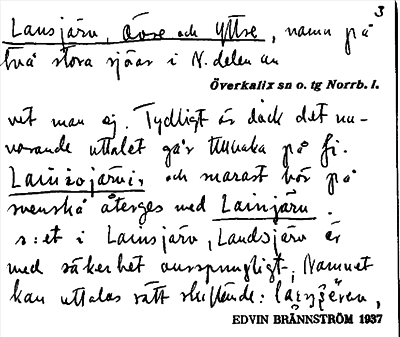 3
Lansjärv, Övre och Yttre, namn på
två stora sjöar i N. delen av
Överkalix sn o. tg Norrb. l.
vet man ej. Tydligt är dock det nu-
varande uttalet går tillbaka på fi.
Lainiojärvi, och snarast bör på
svenska återges med Lainjärv.
s:et i Lainsjärv, Landsjärv är
med säkerhet oursprungligt. Namnet
kan uttalas rätt skiftande:
EDVIN BRÄNNSTRÖM 1937